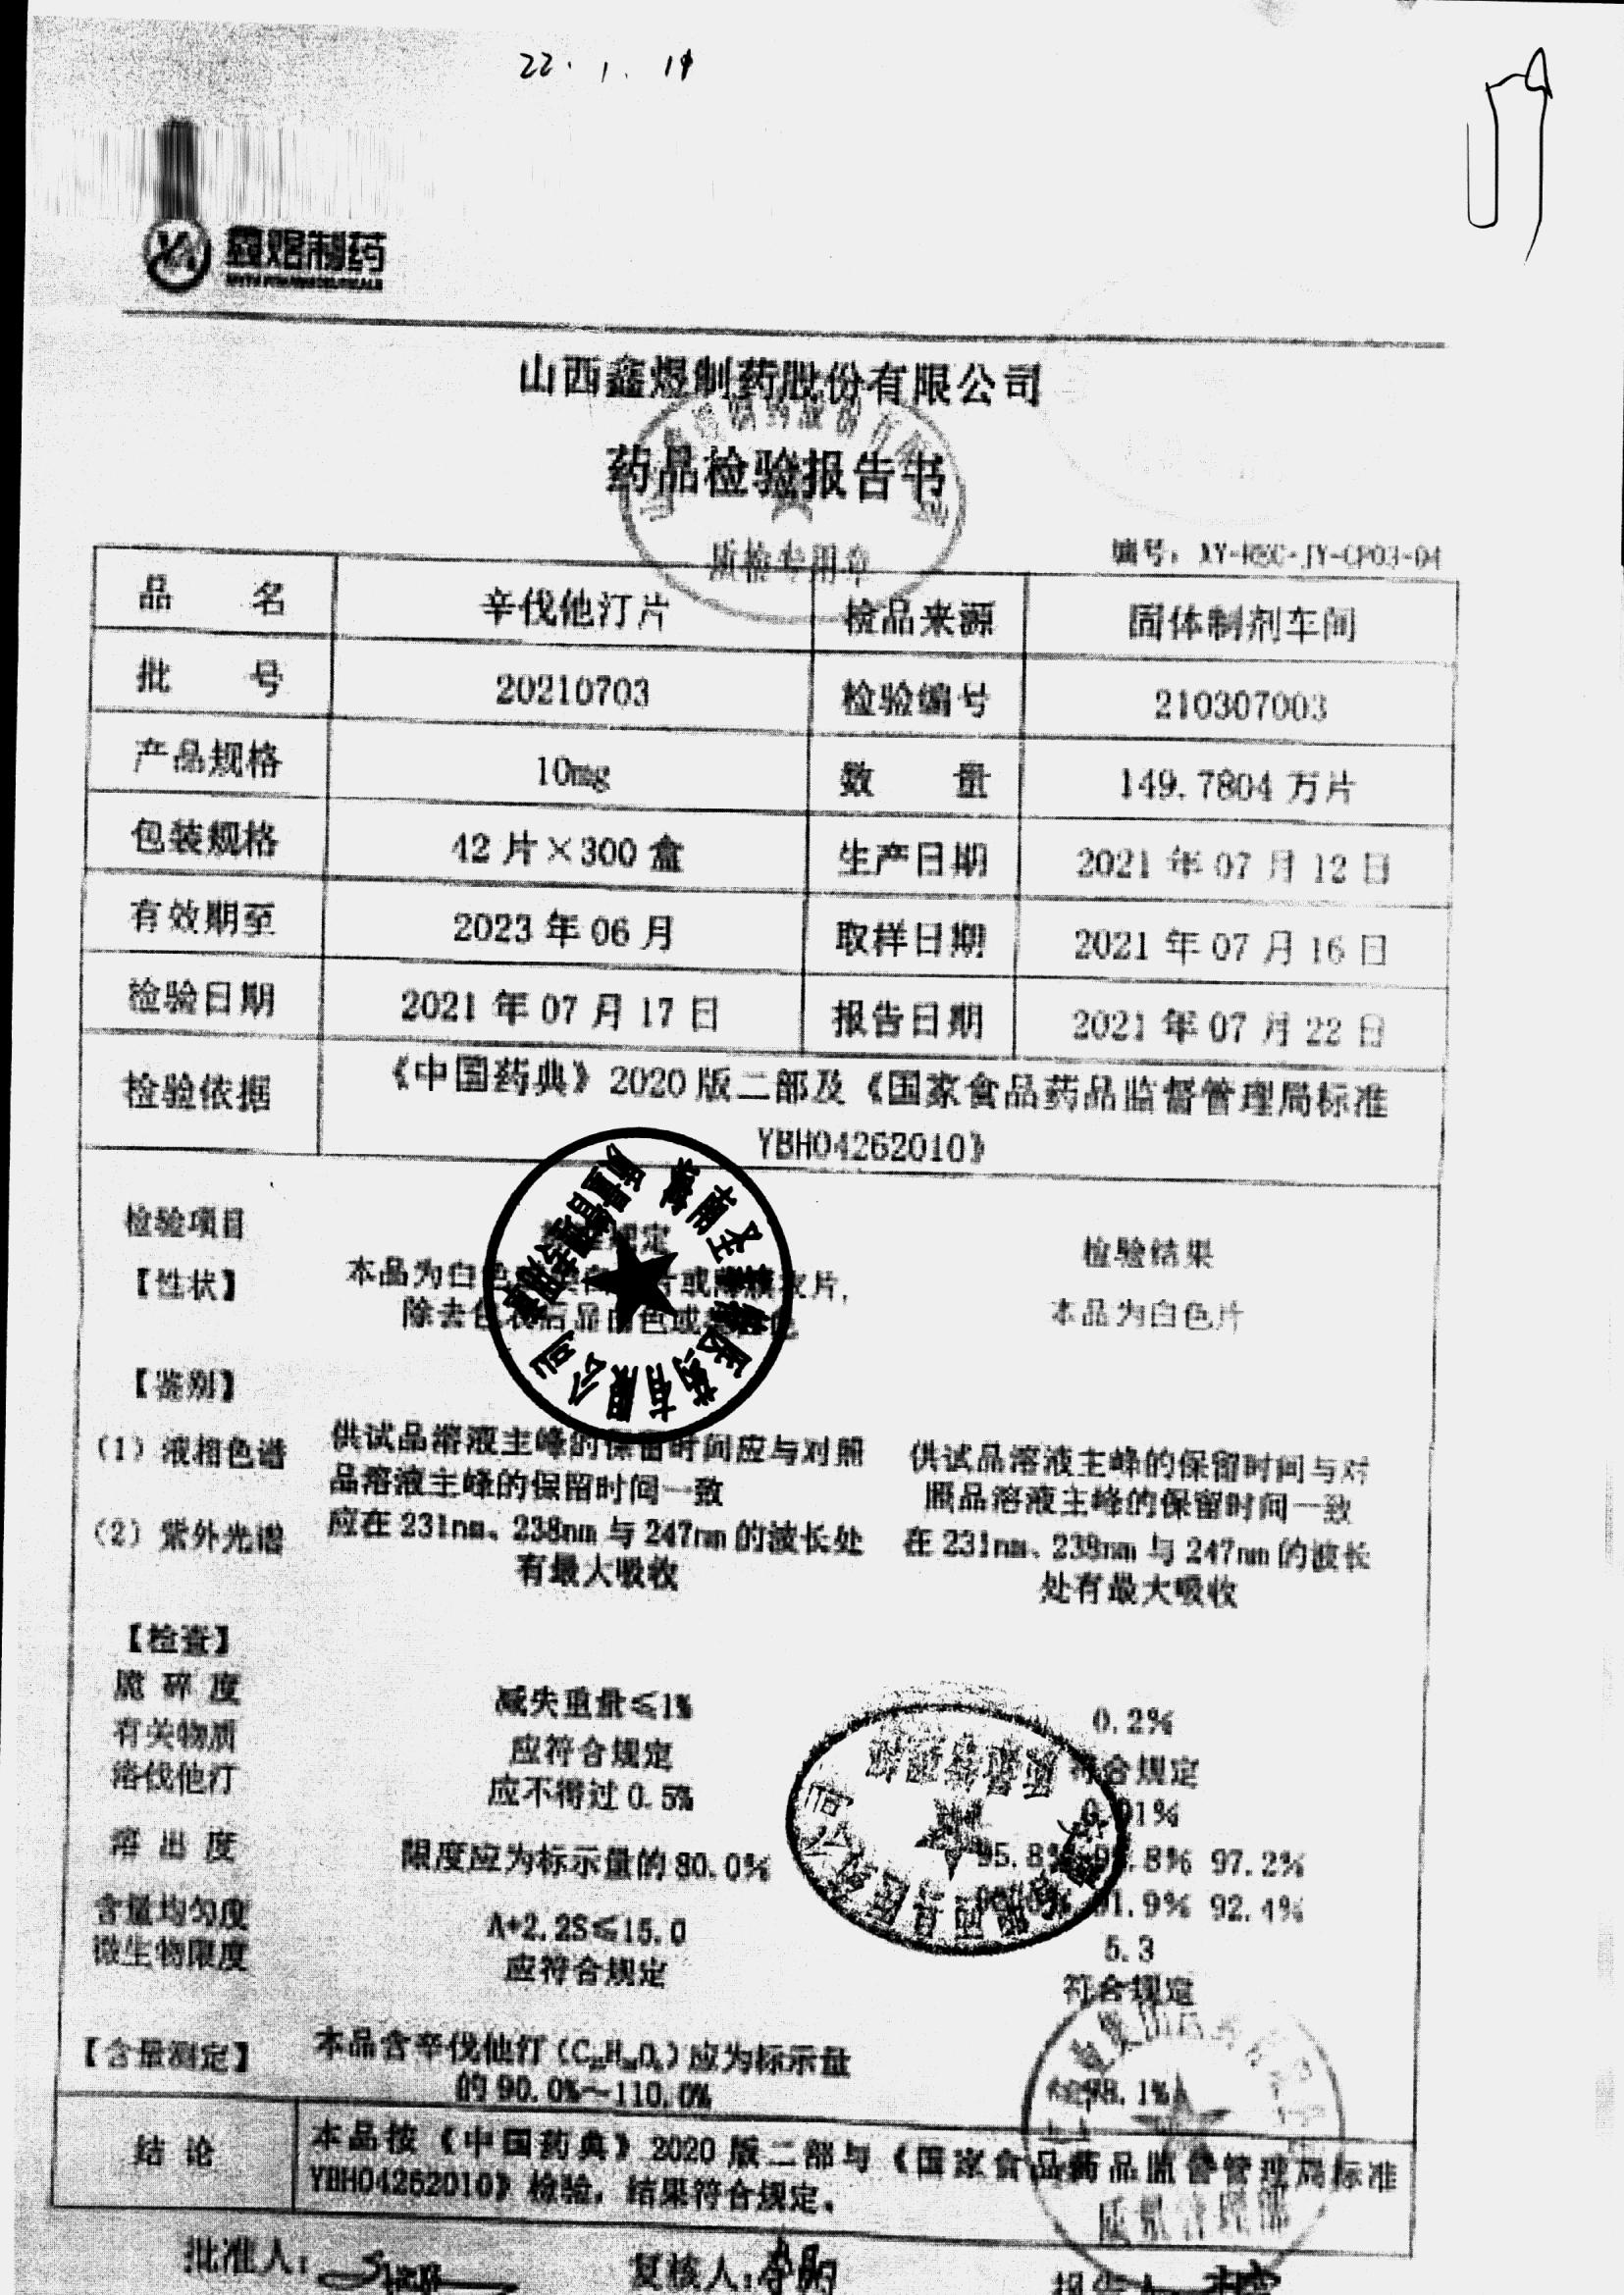 22. 1. 19
鑫煜制药
山西鑫煜制药股份有限公司
药品检验报告书
质检专用章
编号：XY-REC-JY-CP03-04
品 名 辛伐他汀片 检品来源 固体制剂车间
批 号 20210703 检验编号 210307003
产品规格 10mg 数 量 149.7804 万片
包装规格 42 片×300 盒 生产日期 2021 年 07 月 12 日
有效期至 2023 年 06 月 取样日期 2021 年 07 月 16 日
检验日期 2021 年 07 月 17 日 报告日期 2021 年 07 月 22 日
检验依据 《中国药典》2020 版二部及《国家食品药品监督管理局标准
YBH04262010》
检验项目 规定 检验结果
【性状】 本品为白色 片或薄膜衣片， 本品为白色片
除去包衣后显白色或 色
【鉴别】
（1）液相色谱 供试品溶液主峰的保留时间应与对照 供试品溶液主峰的保留时间与对
品溶液主峰的保留时间一致 照品溶液主峰的保留时间一致
（2）紫外光谱 应在 231nm、238nm 与 247nm 的波长处 在 231nm、239nm 与 247nm 的波长
有最大吸收 处有最大吸收
【检查】
脆 碎 度 减失重量≤1% 0.2%
有关物质 应符合规定 符合规定
洛伐他汀 应不得过 0.5% 0.01%
溶 出 度 限度应为标示量的 80.0% 95.8% 8% 97.2%
91.9% 92.4%
含量均匀度 A+2.2S≤15.0 5.3
微生物限度 应符合规定 符合规定
【含量测定】 本品含辛伐他汀（C₂₅H₃₈O₅）应为标示量 98.1%
的 90.0%～110.0%
结 论 本品按《中国药典》2020 版二部与《国家食品药品监督管理局标准
YBH04262010》检验，结果符合规定。
质量管理部
批准人： 复核人： 报告人